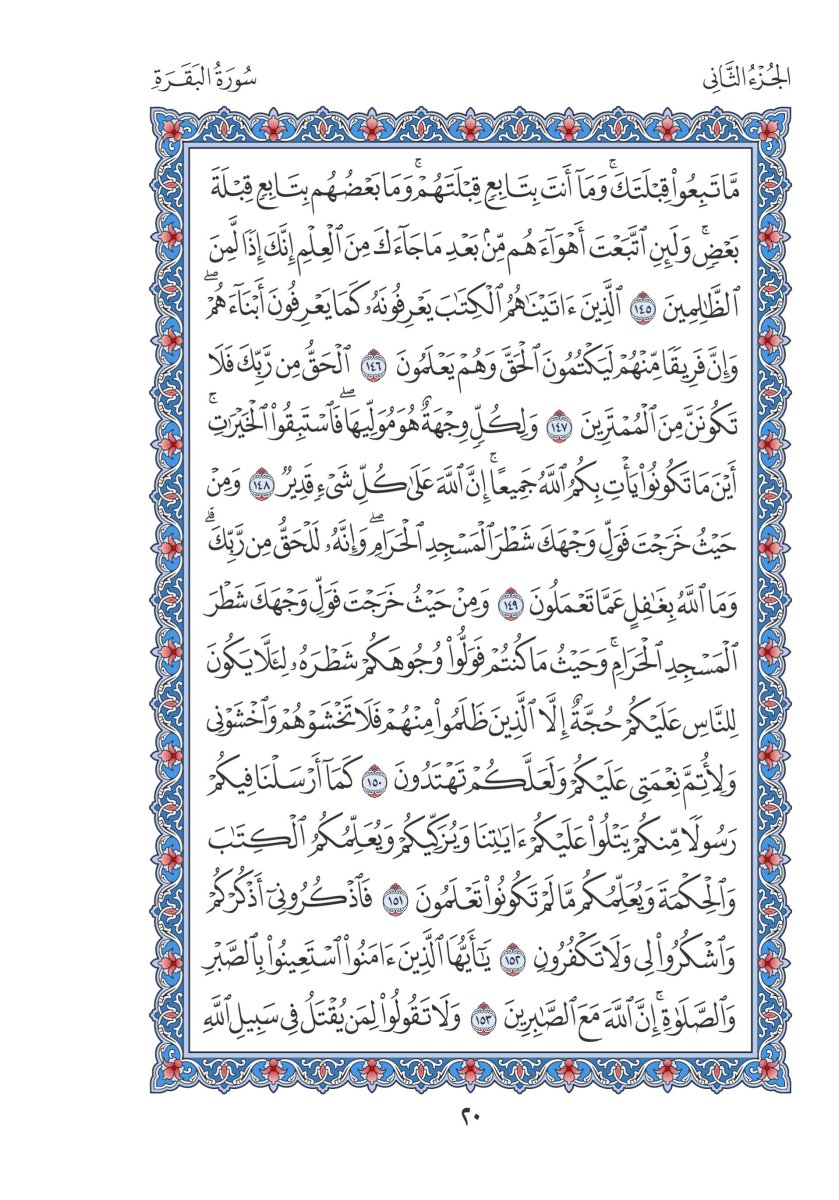 الجُزْءُ الثَّانِى
سُورَةُ البَقَرَةِ
مَّا تَبِعُوا۟ قِبْلَتَكَ ۚ وَمَآ أَنتَ بِتَابِعٍ قِبْلَتَهُمْ ۚ وَمَا بَعْضُهُم بِتَابِعٍ قِبْلَةَ
بَعْضٍ ۚ وَلَئِنِ ٱتَّبَعْتَ أَهْوَآءَهُم مِّنۢ بَعْدِ مَا جَآءَكَ مِنَ ٱلْعِلْمِ إِنَّكَ إِذًا لَّمِنَ
ٱلظَّٰلِمِينَ ١٤٥ ٱلَّذِينَ ءَاتَيْنَٰهُمُ ٱلْكِتَٰبَ يَعْرِفُونَهُۥ كَمَا يَعْرِفُونَ أَبْنَآءَهُمْ ۖ
وَإِنَّ فَرِيقًا مِّنْهُمْ لَيَكْتُمُونَ ٱلْحَقَّ وَهُمْ يَعْلَمُونَ ١٤٦ ٱلْحَقُّ مِن رَّبِّكَ فَلَا
تَكُونَنَّ مِنَ ٱلْمُمْتَرِينَ ١٤٧ وَلِكُلٍّ وِجْهَةٌ هُوَ مُوَلِّيهَا ۖ فَٱسْتَبِقُوا۟ ٱلْخَيْرَٰتِ ۚ
أَيْنَ مَا تَكُونُوا۟ يَأْتِ بِكُمُ ٱللَّهُ جَمِيعًا ۚ إِنَّ ٱللَّهَ عَلَىٰ كُلِّ شَىْءٍ قَدِيرٌ ١٤٨ وَمِنْ
حَيْثُ خَرَجْتَ فَوَلِّ وَجْهَكَ شَطْرَ ٱلْمَسْجِدِ ٱلْحَرَامِ ۖ وَإِنَّهُۥ لَلْحَقُّ مِن رَّبِّكَ ۗ
وَمَا ٱللَّهُ بِغَٰفِلٍ عَمَّا تَعْمَلُونَ ١٤٩ وَمِنْ حَيْثُ خَرَجْتَ فَوَلِّ وَجْهَكَ شَطْرَ
ٱلْمَسْجِدِ ٱلْحَرَامِ ۚ وَحَيْثُ مَا كُنتُمْ فَوَلُّوا۟ وُجُوهَكُمْ شَطْرَهُۥ لِئَلَّا يَكُونَ
لِلنَّاسِ عَلَيْكُمْ حُجَّةٌ إِلَّا ٱلَّذِينَ ظَلَمُوا۟ مِنْهُمْ فَلَا تَخْشَوْهُمْ وَٱخْشَوْنِى
وَلِأُتِمَّ نِعْمَتِى عَلَيْكُمْ وَلَعَلَّكُمْ تَهْتَدُونَ ١٥٠ كَمَآ أَرْسَلْنَا فِيكُمْ
رَسُولًا مِّنكُمْ يَتْلُوا۟ عَلَيْكُمْ ءَايَٰتِنَا وَيُزَكِّيكُمْ وَيُعَلِّمُكُمُ ٱلْكِتَٰبَ
وَٱلْحِكْمَةَ وَيُعَلِّمُكُم مَّا لَمْ تَكُونُوا۟ تَعْلَمُونَ ١٥١ فَٱذْكُرُونِىٓ أَذْكُرْكُمْ
وَٱشْكُرُوا۟ لِى وَلَا تَكْفُرُونِ ١٥٢ يَٰٓأَيُّهَا ٱلَّذِينَ ءَامَنُوا۟ ٱسْتَعِينُوا۟ بِٱلصَّبْرِ
وَٱلصَّلَوٰةِ ۚ إِنَّ ٱللَّهَ مَعَ ٱلصَّٰبِرِينَ ١٥٣ وَلَا تَقُولُوا۟ لِمَن يُقْتَلُ فِى سَبِيلِ ٱللَّهِ
٢٠